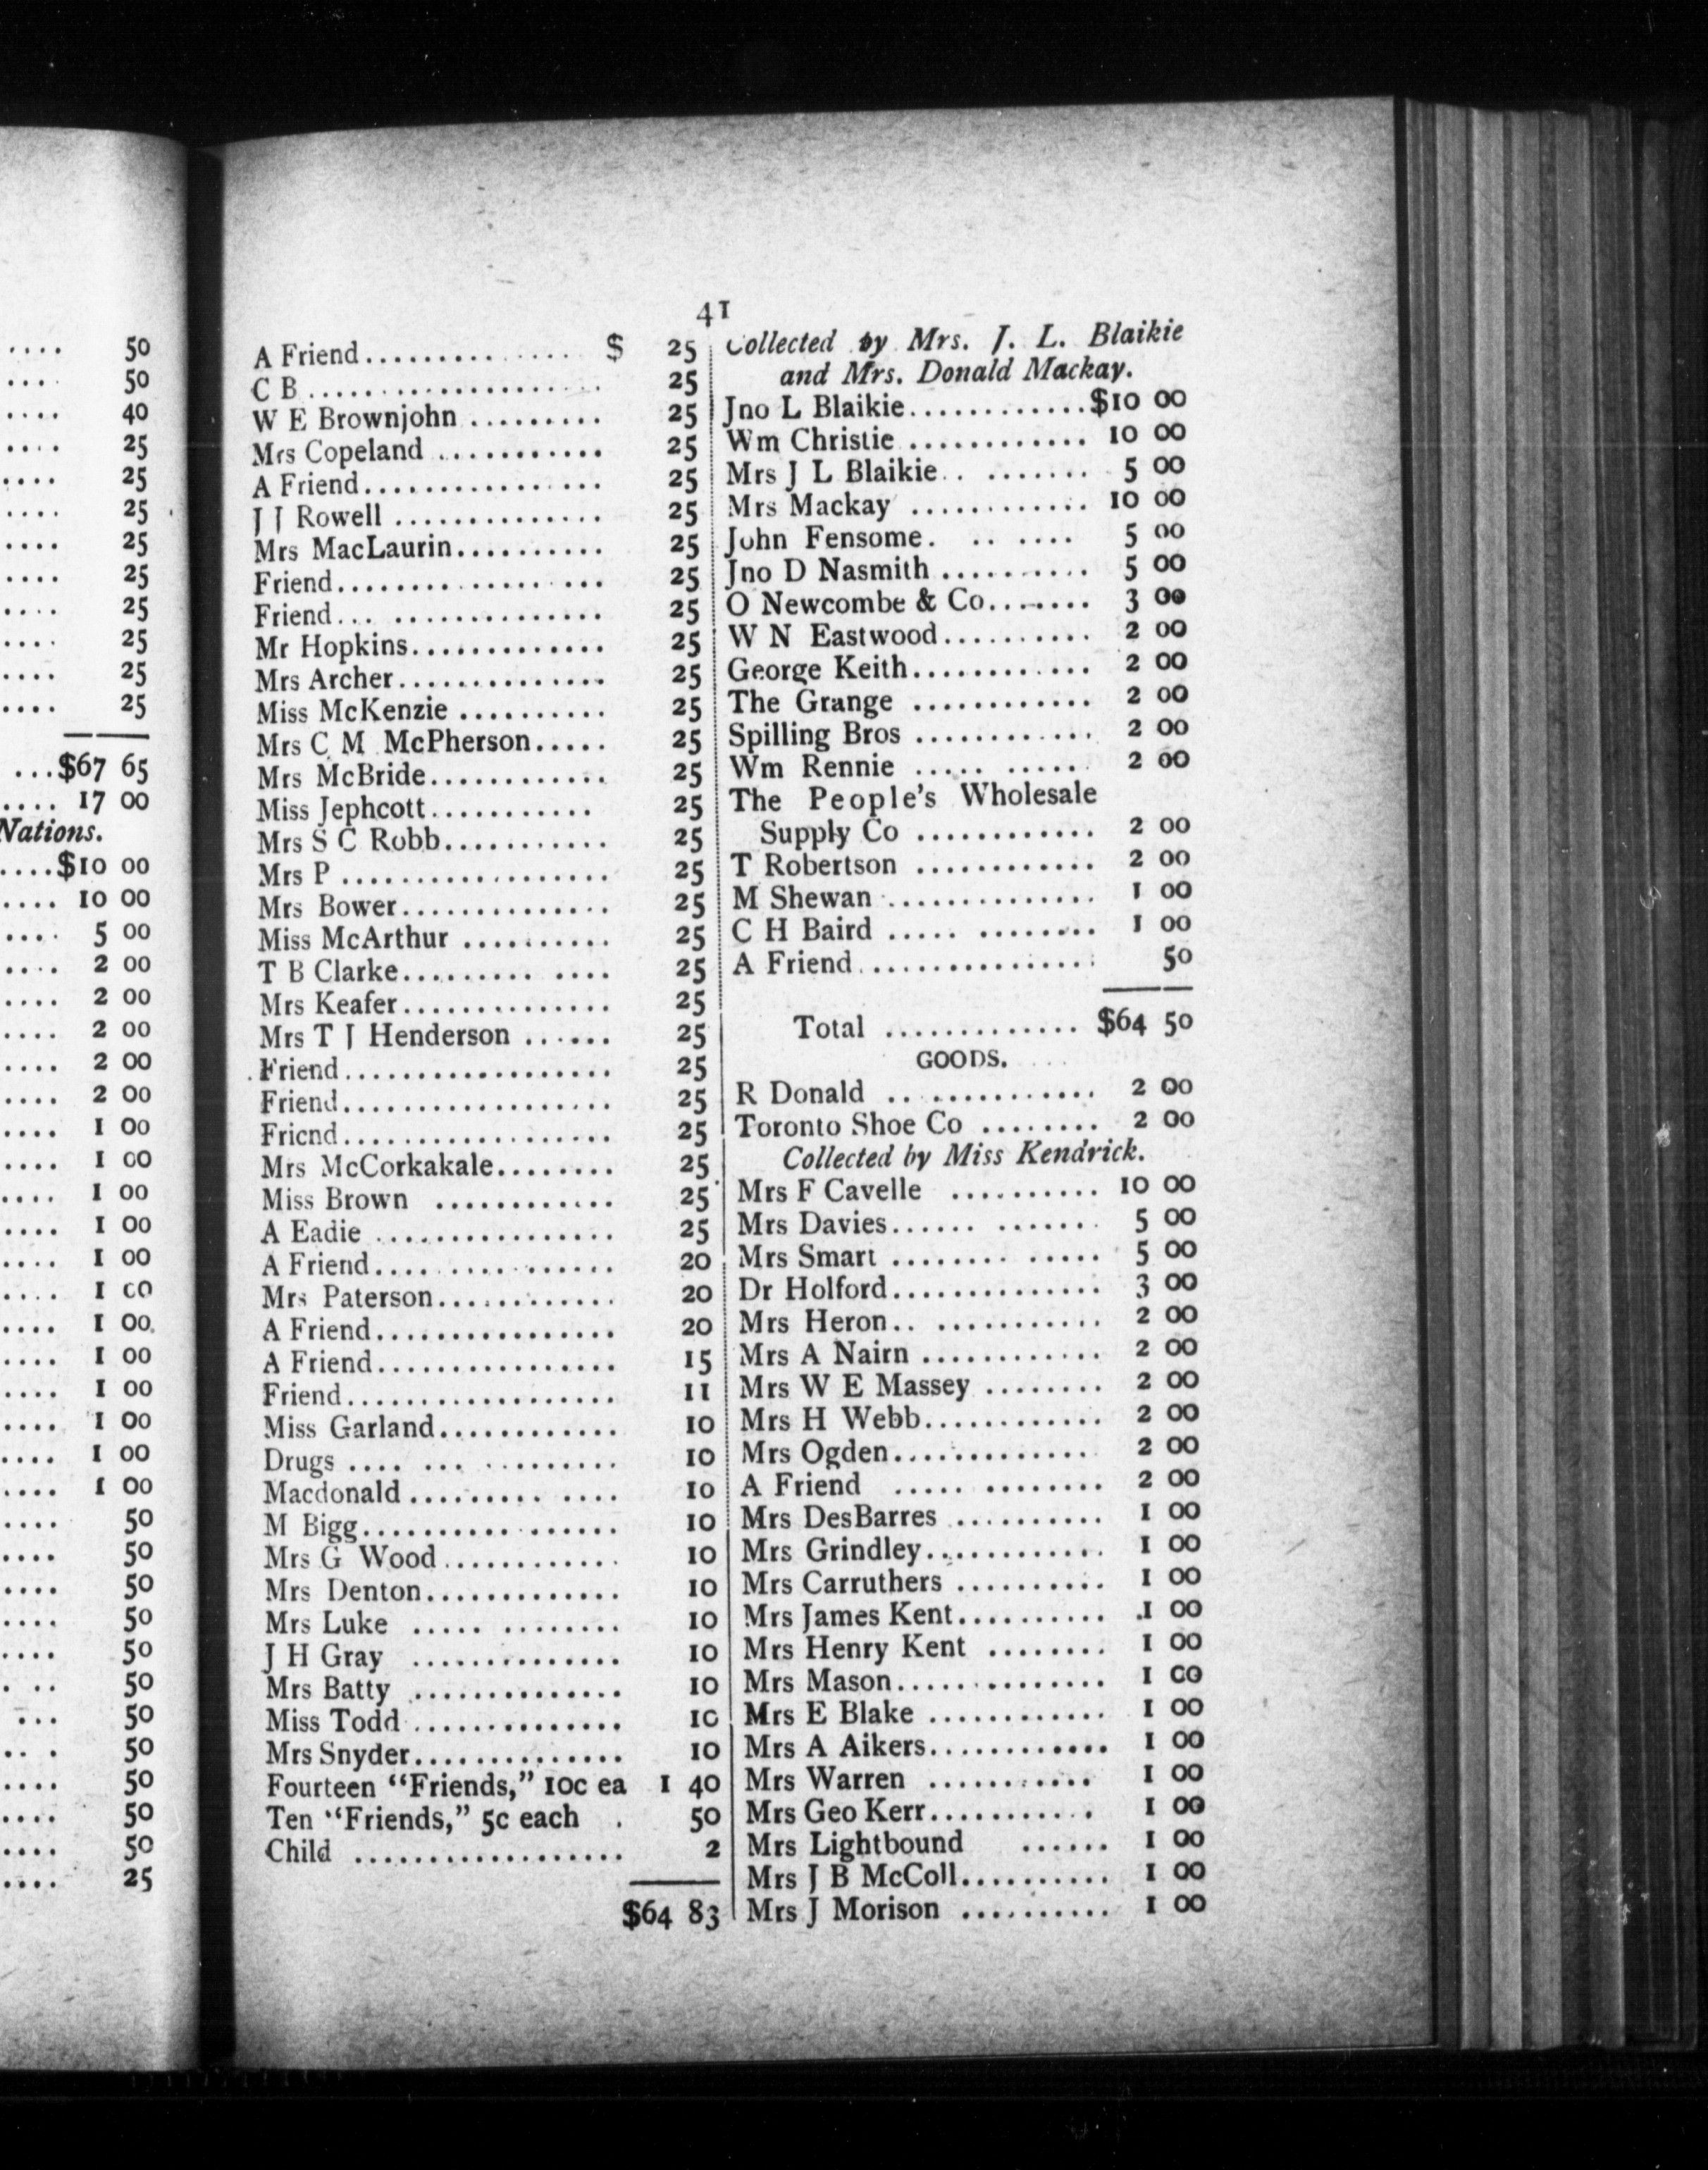 50
50
40
25
25
25
25
25
25
25
25
25
$67 65
17 00
Nations.
$10 00
10 00
5 00
2 00
2 00
2 00
2 00
2 00
1 00
1 00
1 00
1 00
1 00
1 00
1 00
1 00
1 00
1 00
1 00
1 00
50
50
50
50
50
50
50
50
50
50
50
25
41
A Friend................ $ 25
C B .................... 25
W E Brownjohn ......... 25
Mrs Copeland ........... 25
A Friend................ 25
J J Rowell .............. 25
Mrs MacLaurin.......... 25
Friend.................. 25
Friend... .............. 25
Mr Hopkins............. 25
Mrs Archer.............. 25
Miss McKenzie .......... 25
Mrs C M McPherson..... 25
Mrs McBride............ 25
Miss Jephcott........... 25
Mrs S C Robb........... 25
Mrs P .................. 25
Mrs Bower.............. 25
Miss McArthur .......... 25
T B Clarke......... .... 25
Mrs Keafer.............. 25
Mrs T J Henderson ...... 25
Friend.................. 25
Friend.................. 25
Friend.................. 25
Mrs McCorkakale........ 25
Miss Brown ............ 25
A Eadie ................ 25
A Friend................ 20
Mrs Paterson............ 20
A Friend................ 20
A Friend................ 15
Friend.................. 11
Miss Garland............ 10
Drugs .... ... ......... 10
Macdonald ......... .... 10
M Bigg................. 10
Mrs G Wood............ 10
Mrs Denton............. 10
Mrs Luke ..... ........ 10
J H Gray .............. 10
Mrs Batty .............. 10
Miss Todd .............. 10
Mrs Snyder.............. 10
Fourteen "Friends," 10c ea 1 40
Ten "Friends," 5c each . 50
Child .................. 2
$64 83
Collected by Mrs. J. L. Blaikie
and Mrs. Donald Mackay.
Jno L Blaikie............$10 00
Wm Christie ............ 10 00
Mrs J L Blaikie.. ....... 5 00
Mrs Mackay ............ 10 00
John Fensome. .. .... 5 00
Jno D Nasmith .......... 5 00
O Newcombe & Co....... 3 00
W N Eastwood.......... 2 00
George Keith............ 2 00
The Grange ............ 2 00
Spilling Bros ............ 2 00
Wm Rennie ..... ...... 2 00
The People's Wholesale
Supply Co ............ 2 00
T Robertson ............ 2 00
M Shewan .............. 1 00
C H Baird ..... ........ 1 00
A Friend................ 50
Total ............. $64 50
GOODS.
R Donald .. ........... 2 00
Toronto Shoe Co ........ 2 00
Collected by Miss Kendrick.
Mrs F Cavelle .......... 10 00
Mrs Davies...... ....... 5 00
Mrs Smart ........ ..... 5 00
Dr Holford.............. 3 00
Mrs Heron.. ........... 2 00
Mrs A Nairn ............ 2 00
Mrs W E Massey ........ 2 00
Mrs H Webb............ 2 00
Mrs Ogden.............. 2 00
A Friend ..... ........ 2 00
Mrs DesBarres .......... 1 00
Mrs Grindley............ 1 00
Mrs Carruthers .......... 1 00
Mrs James Kent.......... 1 00
Mrs Henry Kent ........ 1 00
Mrs Mason.............. 1 00
Mrs E Blake ............ 1 00
Mrs A Aikers............ 1 00
Mrs Warren ........... 1 00
Mrs Geo Kerr........... 1 00
Mrs Lightbound ...... 1 00
Mrs J B McColl.......... 1 00
Mrs J Morison .......... 1 00